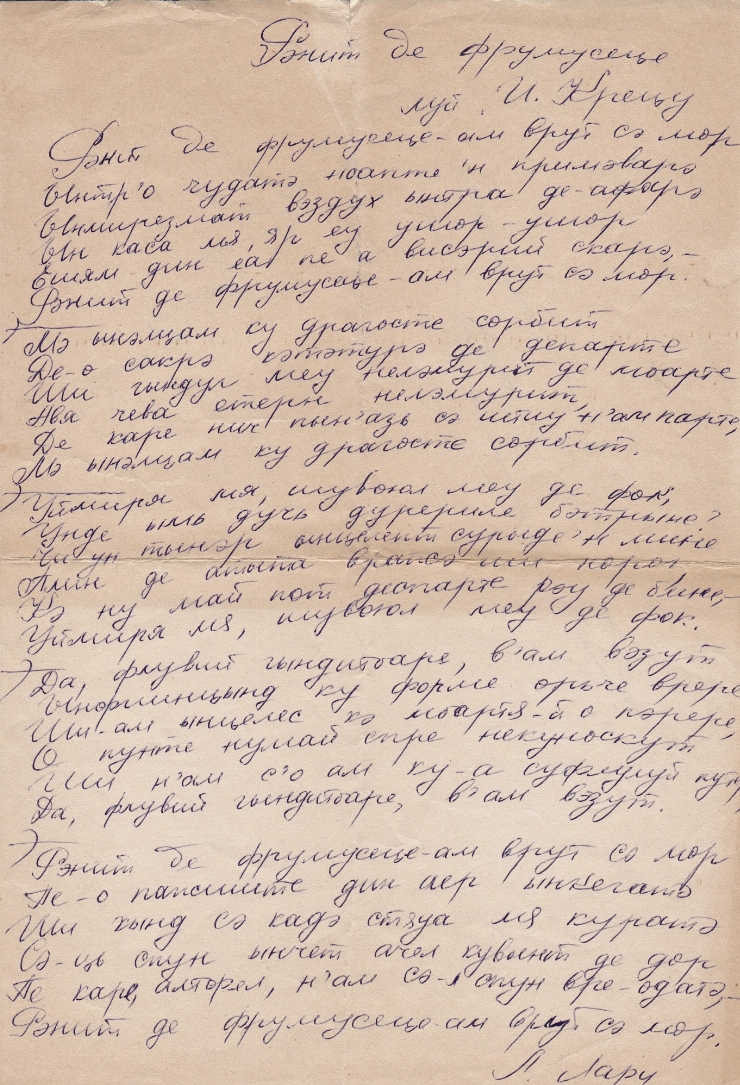 Рэнит де фрумусеце
луй И. Крецу
Рэнит де фрумусеце-ам врут сэ мор
Ынтр'о чудатэ ноапте 'н примэварэ
Ынмирезмат вэздух ынтра де-афарэ
Ын каса мя, яр еу ушор-ушор
Ешям дин еа пе а висэрий скарэ,-
Рэнит де фрумусеце-ам врут сэ мор.
Мэ ынэлцам ку драгосте сорбит
Де-о сакрэ кэтэтурэ де департе
Ши гындул меу нелэмурит де моарте
Авя чева етерн нелэмурит,
Де каре ник пын'азь сэ штиу н'ам парте,
Мэ ынэлцам ку драгосте сорбит.
Уймиря мя, шувоюл меу де фок,
Унде ымь дучь дурериле бэтрыне?
Чи ун тынэр ынцелепт сурыде 'н мине
Плин де атыта вражэ ши норок
Кэ ну май пот деспарте рэу де бине,-
Уймиря мя, шувоюл меу де фок.
Да, флувий гындитоаре, в'ам вэзут
Ынфиинцынд ку форме орьче врере
Ши-ам ынцелес кэ моартя-й о пэрере,
О пунте нумай спре некуноскут
Ши н'ам с'о ам ку-а суфлулуй
Да, флувий гындитоаре, в'ам вэзут.
Рэнит де фрумусеце-ам врут сэ мор
Пе-о паиште дин аер ынкегатэ
Ши кынд сэ кадэ стяуа мя куратэ
Сэ-ць спун ынчет ачел кувынт де дор
Пе каре, алторел, н'ам сэ-л спун вре-одатэ,-
Рэнит де фрумусеце-ам врут сэ мор.
Л. Лари